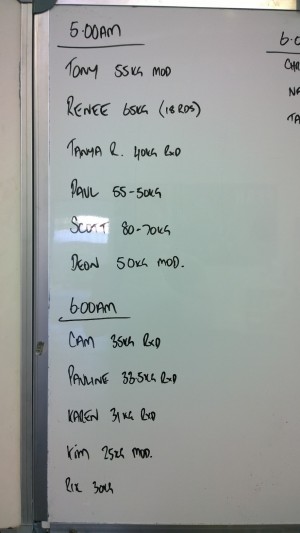 5:00AM
TONY 55KG MOD
RENEE 65KG (18 RDS)
TANYA R. 40KG RXD
PAUL 55-50KG
SCOTT 80-70KG
DEON 50KG MOD.
6:00AM
CAM 35KG RXD
PAULINE 33.5KG RXD
KAREN 31KG RXD
KIM 25KG MOD.
RIX 30KG
6:0
CHR
NA
TA